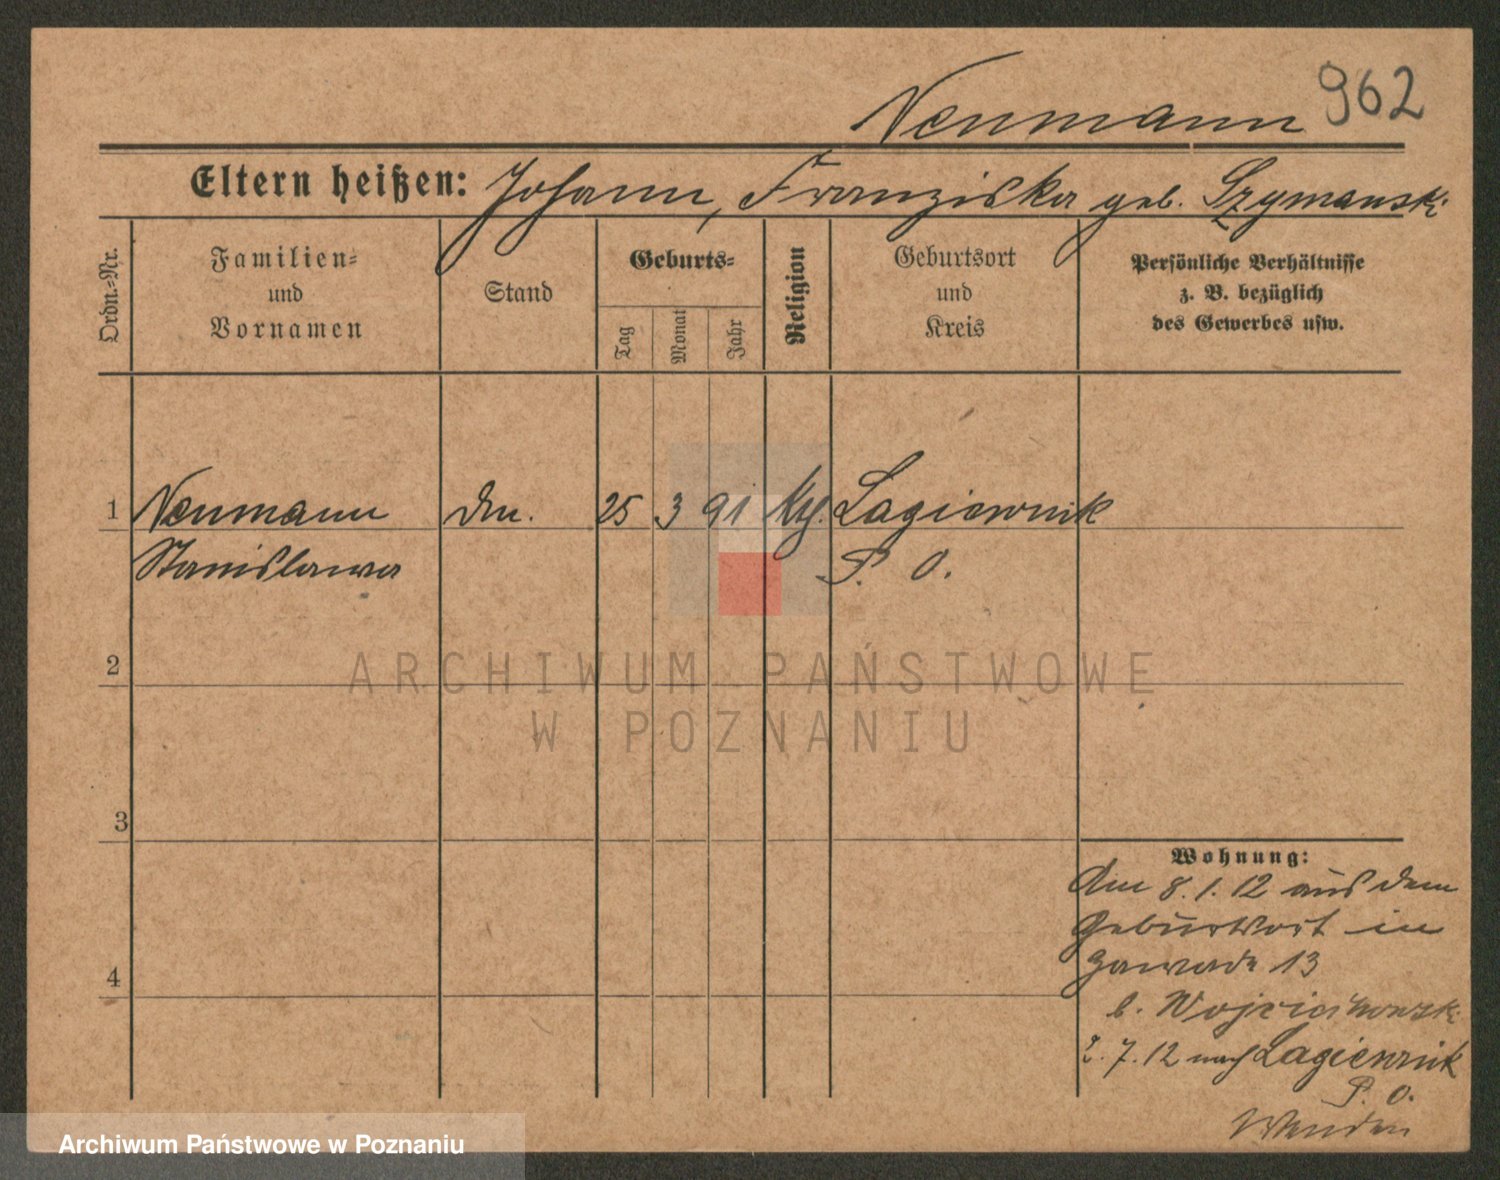 962
Neumann
Eltern heißen: Johann, Franziska geb. Szymanski
Ordn.-Nr.
Familien-
und
Vornamen
Stand
Geburts-
Tag
Monat
Jahr
Religion
Geburtsort
und
Kreis
Persönliche Verhältnisse
z. B. bezüglich
des Gewerbes usw.
1 Neumann 25 3 91 Lagiewnik
Stanislawa P. O.
2
ARCHIWUM PAŃSTWOWE
W POZNANIU
3
4
Wohnung:
Am 8.1.12 aus dem
Geburtsort in
Zawade 13
b.
2.7.12 nach Lagiewnik
P. O.
Archiwum Państwowe w Poznaniu